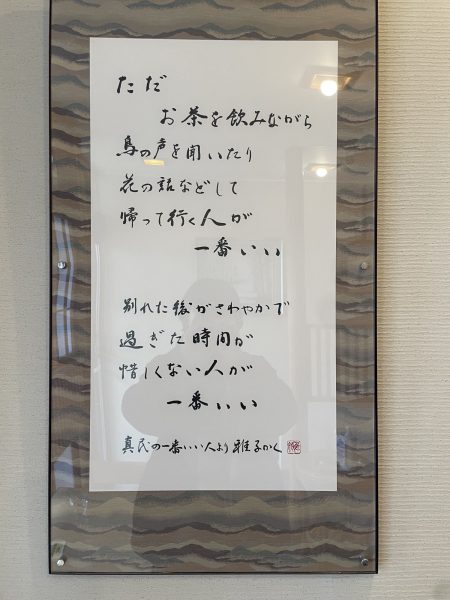 ただ
お茶を飲みながら
鳥の声を聞いたり
花の話などして
帰って行く人が
一番いい
別れた後がさわやかで
過ぎた時間が
惜しくない人が
一番いい
真民の一番いい人より 雅子かく